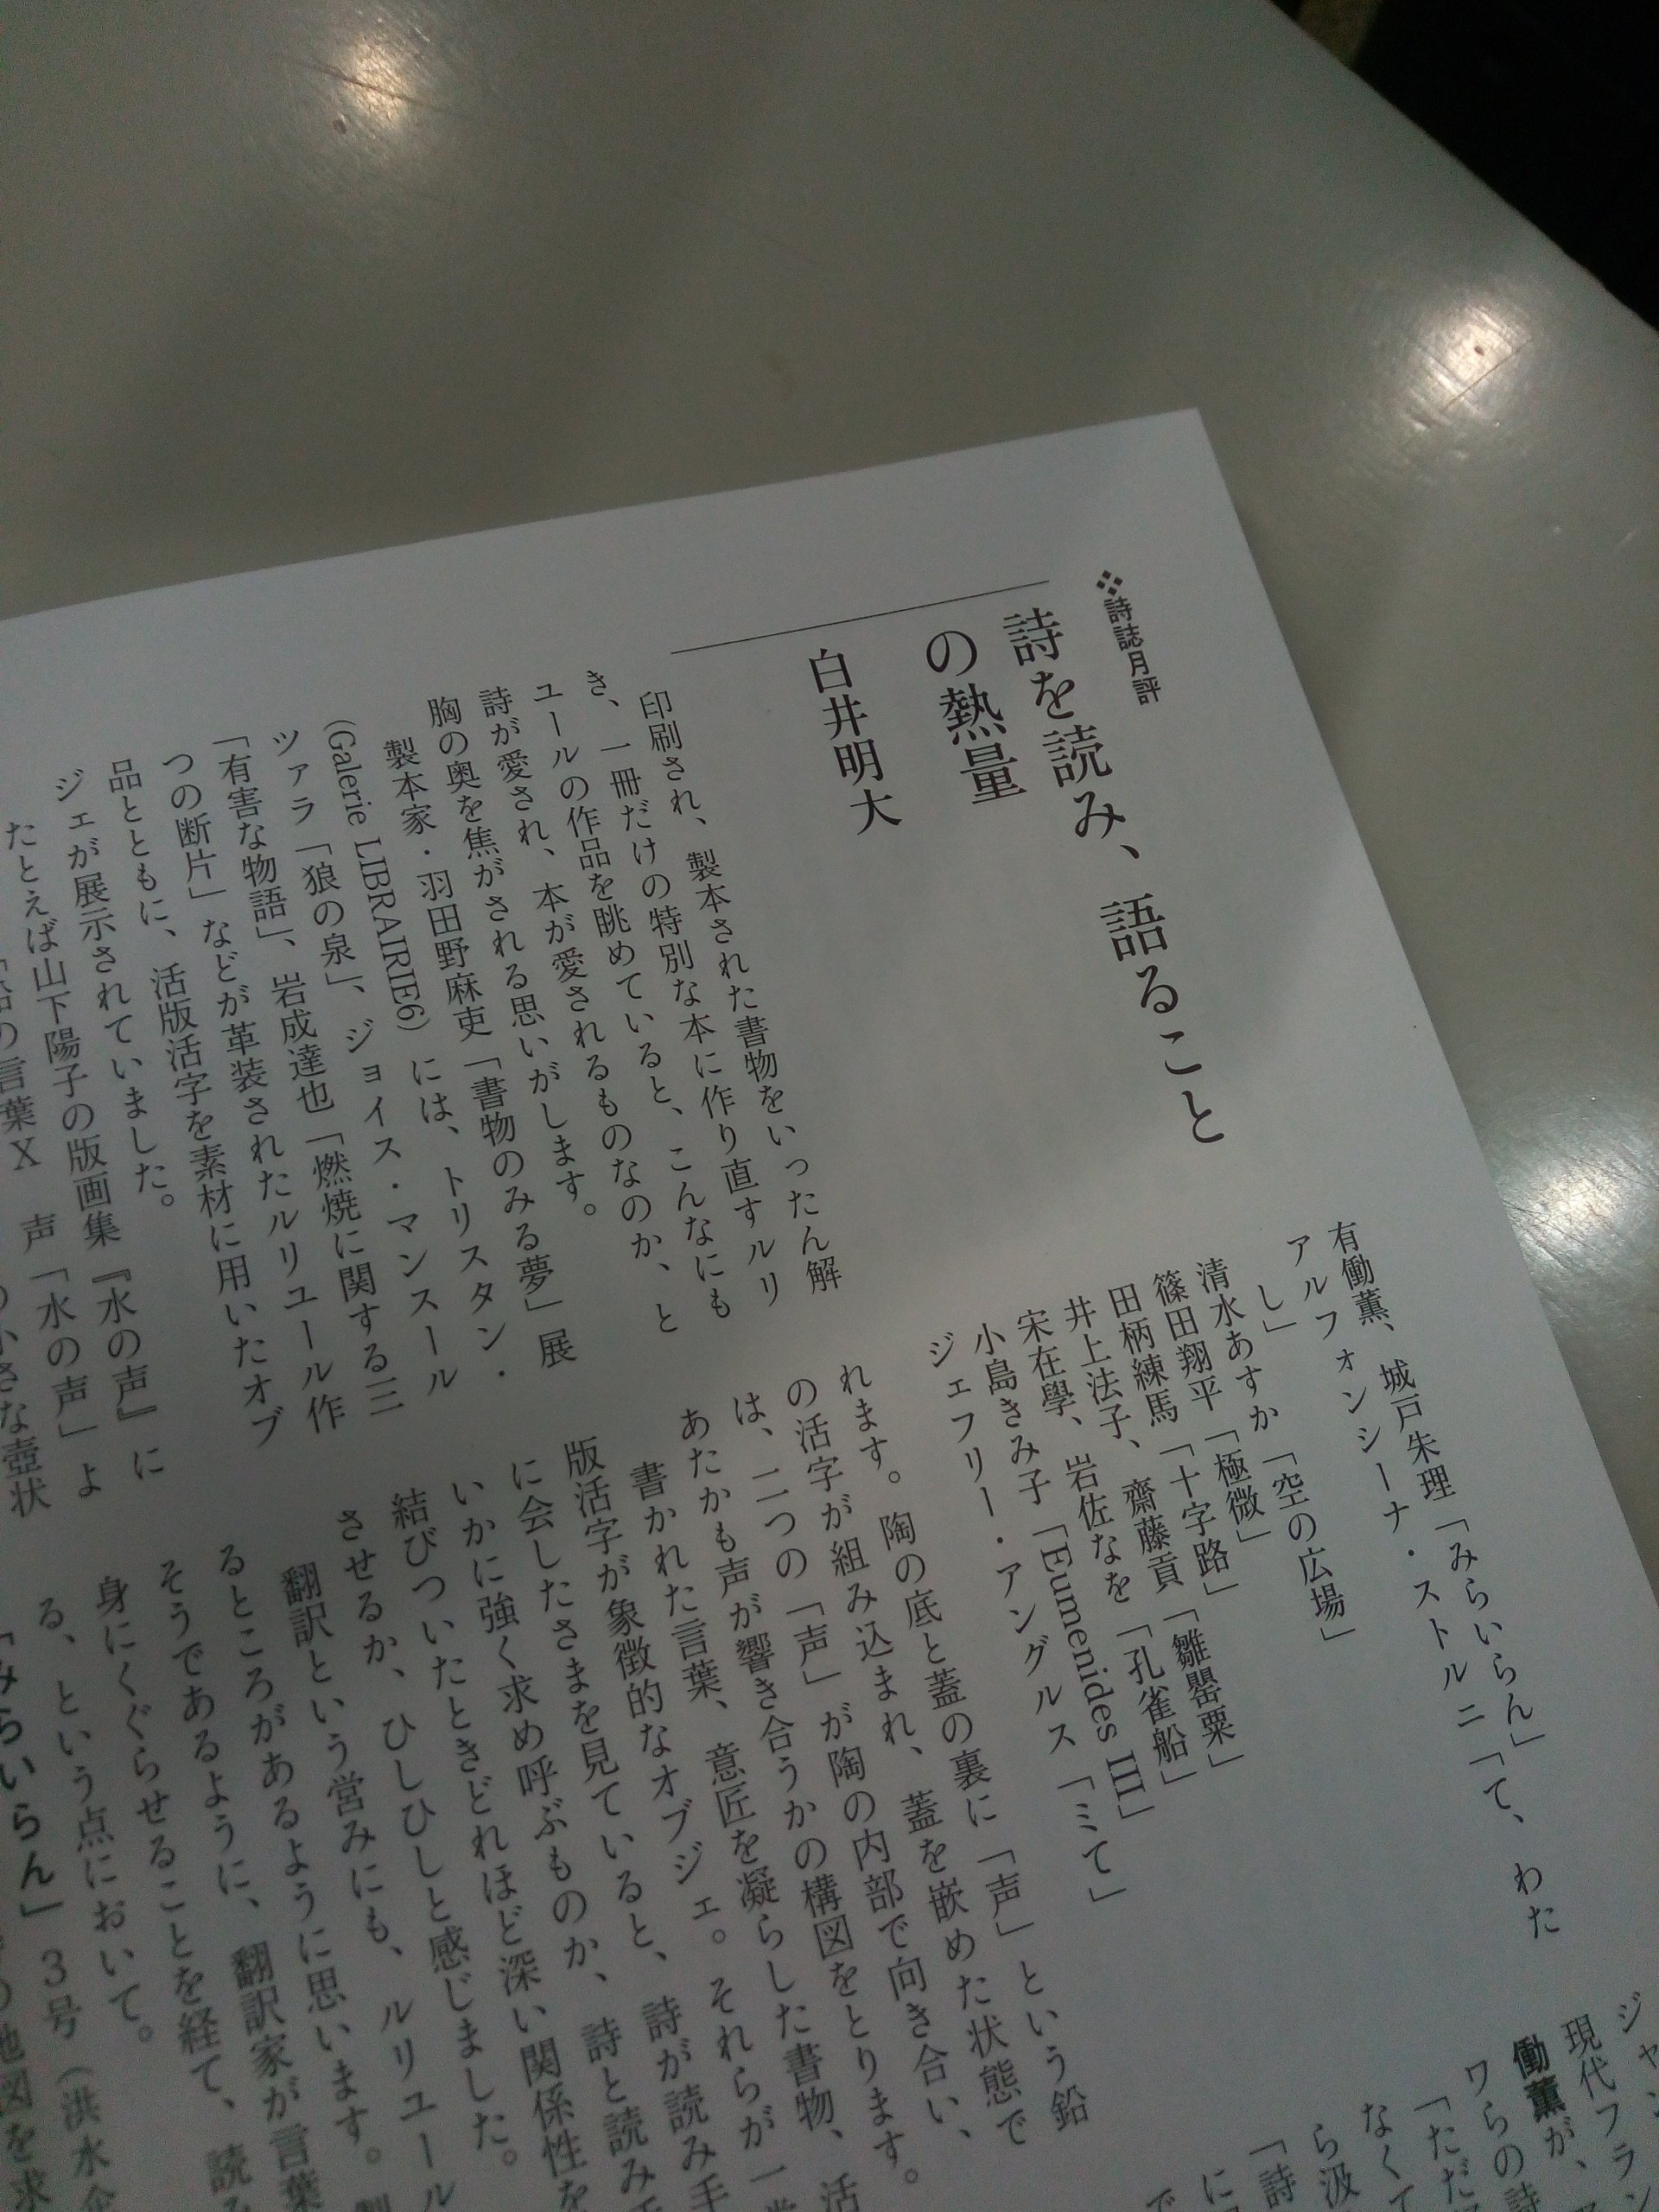 詩誌月評
詩を読み、語ること
の熱量
白井明大
印刷され、製本された書物をいったん解
き、一冊だけの特別な本に作り直すルリ
ユールの作品を眺めていると、こんなにも
詩が愛され、本が愛されるものなのか、と
胸の奥を焦がされる思いがします。
製本家・羽田野麻吏「書物のみる夢」展
(Galerie LIBRAIRIE6) には、トリスタン・
ツァラ「狼の泉」、ジョイス・マンスール
「有害な物語」、岩成達也「燃焼に関する三
つの断片」などが革装されたルリユール作
品とともに、活版活字を素材に用いたオブ
ジェが展示されていました。
たとえば山下陽子の版画集『水の声』に
声「水の声」よ
の言葉X
小さな壺状
有働薫、城戸朱理「みらいらん」
アルフォンシーナ・ストルニ「て、わた
し」
清水あすか「空の広場」
篠田翔平「極微」
田柄練馬「十字路」
井上法子、齋藤貢「雛罌粟」
宋在學、岩佐なを「孔雀船」
小島きみ子「Eumenides III」
ジェフリー・アングルス「ミて」
れます。陶の底と蓋の裏に「声」という鉛
の活字が組み込まれ、蓋を嵌めた状態で
は、二つの「声」が陶の内部で向き合い、
あたかも声が響き合うかの構図をとります。
書かれた言葉、意匠を凝らした書物、活
版活字が象徴的なオブジェ。それらが一堂
に会したさまを見ていると、詩が読み手
いかに強く求め呼ぶものか、詩と読み手
結びついたときどれほど深い関係性を
させるか、ひしひしと感じました。
翻訳という営みにも、ルリユール
るところがあるように思います。
そうであるように、翻訳家が言葉
身にくぐらせることを経て、読み
る、という点において。
「みらいらん」3号(洪水企
地図を求
ジャン
現代フラン
働薫が、
ワらの詩
「ただ
なくて
ら汲
「詩
に
で